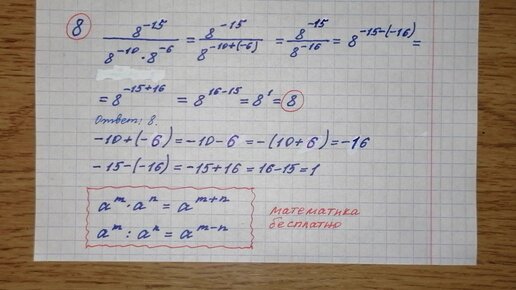 8
8⁻¹⁵ / (8⁻¹⁰ · 8⁻⁶) = 8⁻¹⁵ / 8⁻¹⁰⁺⁽⁻⁶⁾ = 8⁻¹⁵ / 8⁻¹⁶ = 8⁻¹⁵⁻⁽⁻¹⁶⁾ =
= 8⁻¹⁵⁺¹⁶ = 8¹⁶⁻¹⁵ = 8¹ = 8
Ответ: 8.
-10+(-6) = -10-6 = -(10+6) = -16
-15-(-16) = -15+16 = 16-15 = 1
aᵐ · aⁿ = aᵐ⁺ⁿ
aᵐ : aⁿ = aᵐ⁻ⁿ
математика
бесплатно